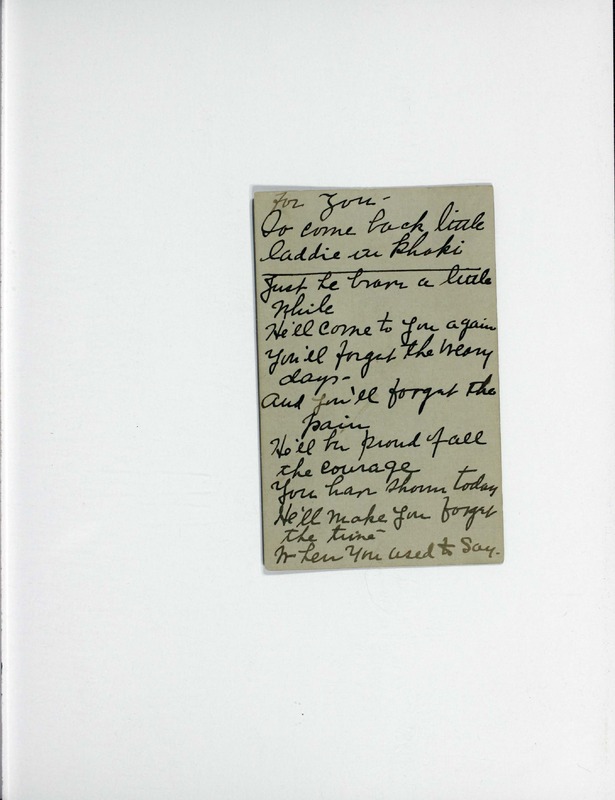 For you-
So come back little
laddie in Khaki
Just be brave a little
while
He'll come to you again
You'll forget the weary
days-
And you'll forget the
pain
He'll be proud of all
the courage
You have shown today
He'll make you forget
the time
When you used to Say.